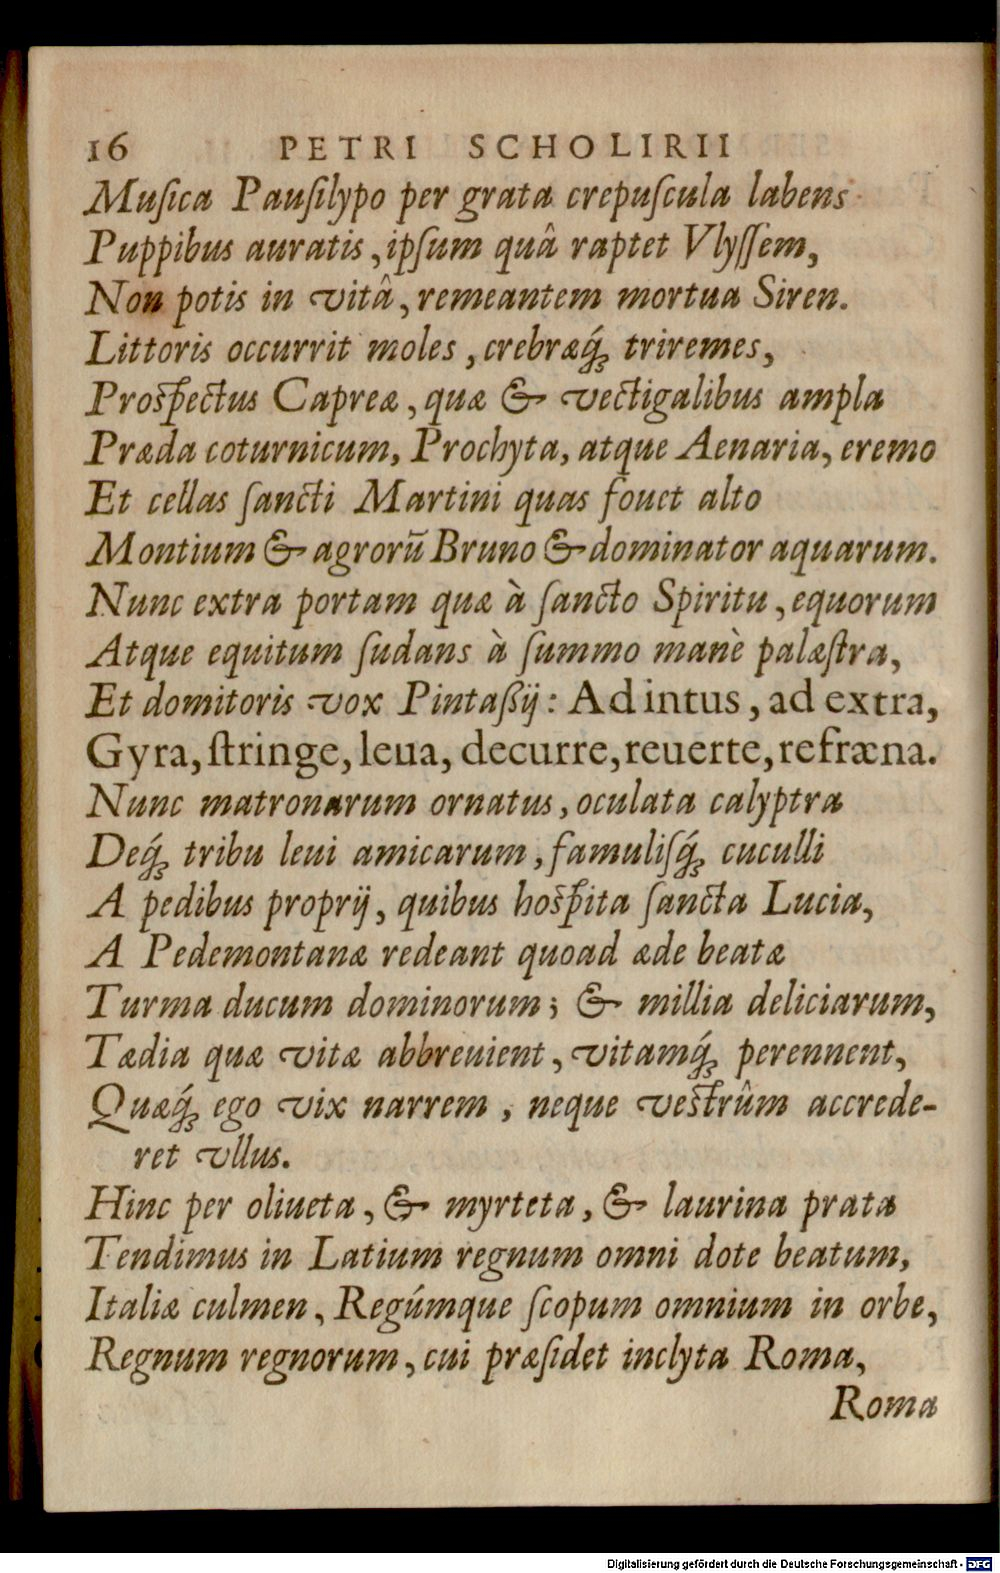 16 PETRI SCHOLIRII
Muſica Pauſilypo per grata crepuſcula labens
Puppibus auratis, ipſum quâ raptet Vlyſſem,
Non potis in vitâ, remeantem mortua Siren.
Littoris occurrit moles, crebræq́ꝫ triremes,
Proſpectus Capreæ, quæ & vectigalibus ampla
Præda coturnicum, Prochyta, atque Aenaria, eremo
Et cellas ſancti Martini quas fouet alto
Montium & agrorū Bruno & dominator aquarum.
Nunc extra portam quæ à ſancto Spiritu, equorum
Atque equitum ſudans à ſummo manè palæſtra,
Et domitoris vox Pintaßij: Ad intus, ad extra,
Gyra, ſtringe, leua, decurre, reuerte, refræna.
Nunc matronarum ornatus, oculata calyptra
Deq́ꝫ tribu leui amicarum, famuliſq́ꝫ cuculli
A pedibus proprij, quibus hoſpita ſancta Lucia,
A Pedemontanæ redeant quoad æde beatæ
Turma ducum dominorum; & millia deliciarum,
Tædia quæ vitæ abbreuient, vitamq́ꝫ perennent,
Quæq́ꝫ ego vix narrem, neque veſtrûm accrede-
ret vllus.
Hinc per oliueta, & myrteta, & laurina prata
Tendimus in Latium regnum omni dote beatum,
Italiæ culmen, Regúmque ſcopum omnium in orbe,
Regnum regnorum, cui præſidet inclyta Roma,
Roma
Digitalisierung gefördert durch die Deutsche Forschungsgemeinschaft - DFG